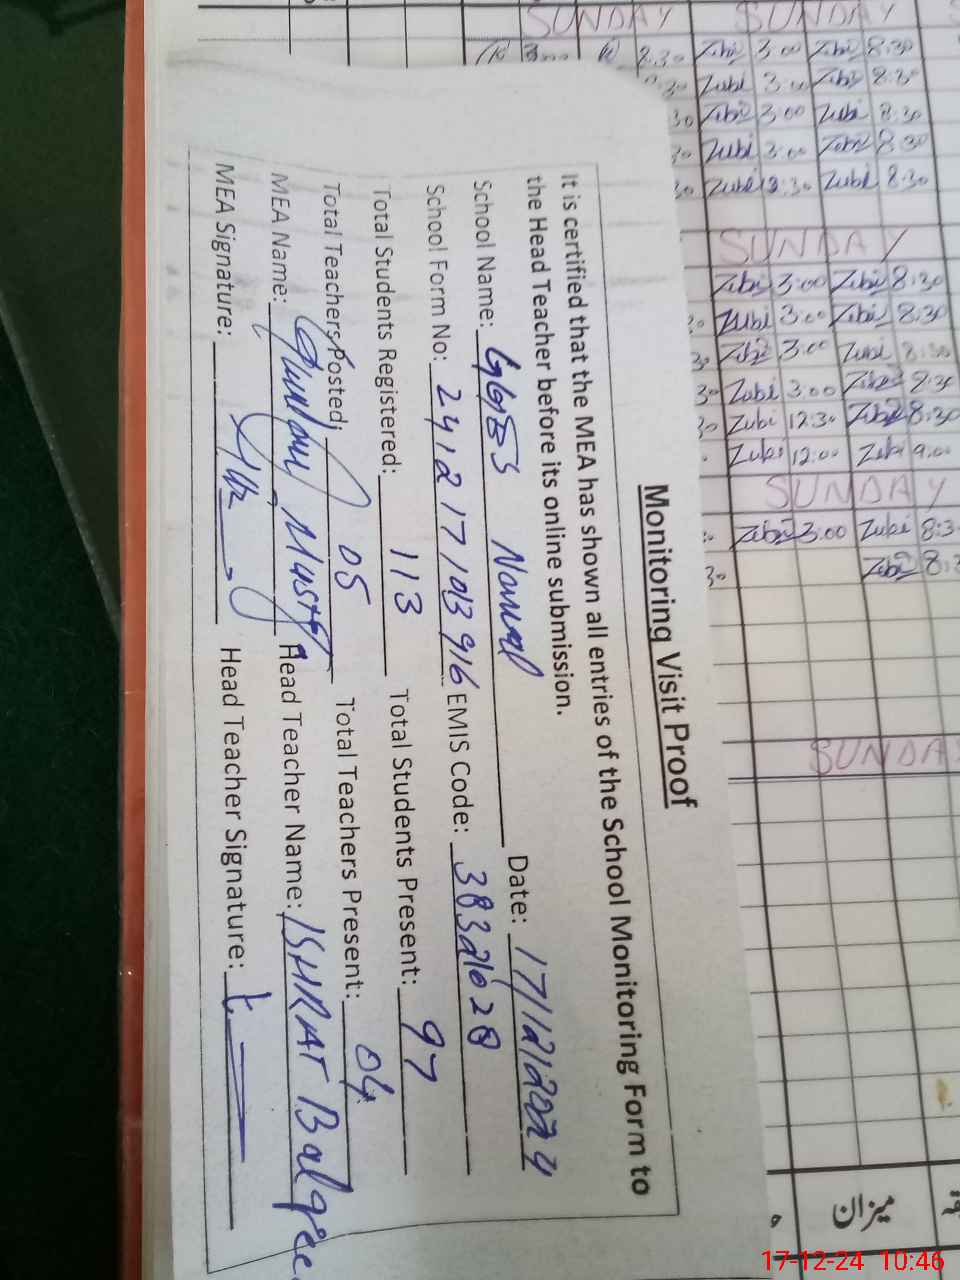 Monitoring Visit Proof
It is certified that the MEA has shown all entries of the School Monitoring Form to
the Head Teacher before its online submission.
School Name: GGPS Date: 17/12/2024
School Form No: 241217 1013916 EMIS Code: 38321028
Total Students Registered: 113 Total Students Present: 97
Total Teachers Posted: 05 Total Teachers Present: 04
MEA Name: Ghulam Head Teacher Name: ISHRAT
MEA Signature: Head Teacher Signature:
SUNDAY SUNDAY
8:30 Zubi 3:00 Zubi 8:30
30 Zubi 3:00 Zubi 8:30
30 Zubi 3:00 Zubi 8:30
30 Zubi 3:00 Zubi 8:30
30 Zubi 8:30
SUNDAY
Zubi 3:00 Zubi 8:30
30 Zubi 3:00 Zubi 8:30
30 Zubi 3:00 Zubi 8:30
30 Zubi 3:00 Zubi 8:30
30 Zubi 12:30 Zubi 8:30
Zubi 12:00 Zubi 9:00
SUNDAY
Zubi 3:00 Zubi 8:3
30 Zubi 8:
SUNDAY
میزان
17-12-24 10:46